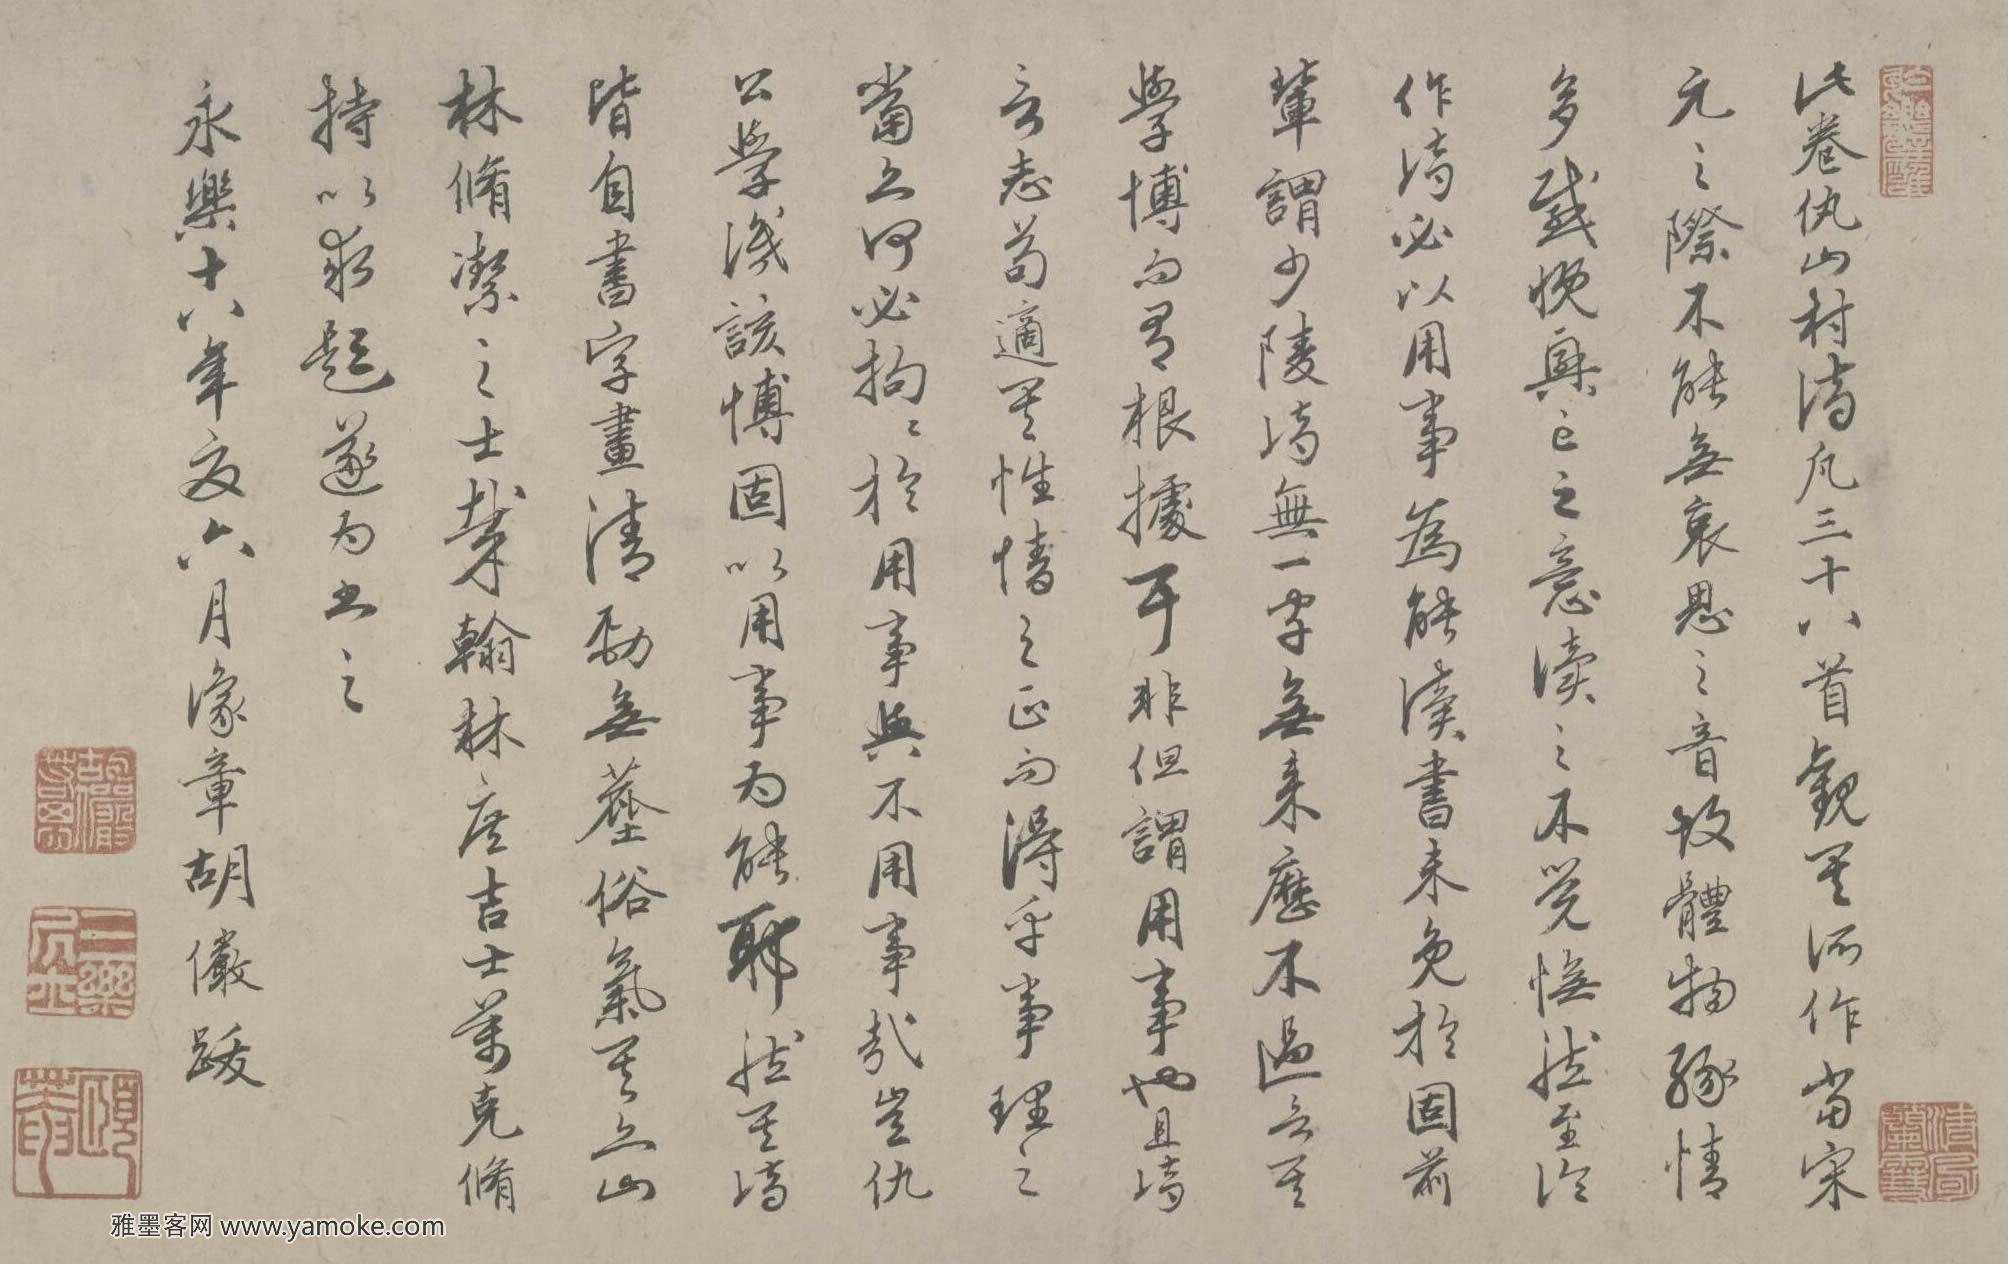 此卷仇山村詩凡三十八首觀其所作當宋
元之際不能無哀思之音故體物緣情
多感慨興亡之意讀之不覺憮然至論
作詩必以用事為能讀書未免於固前
輩謂少陵詩無一字無来歷不過言其
學博而有根據耳非但謂用事也且詩
言志苟適其性情之正而得乎事理之
當亦何必拘拘於用事與不用事哉豈仇
公學識該博固以用事为能耶然其詩
皆自書字畫清勁無塵俗氣其亦山
林脩潔之士歟翰林庶吉士萬克脩
持以求題遂为書之
永樂十八年夏六月豫章胡儼跋
胡儼
雅墨客网 www.yamoke.com